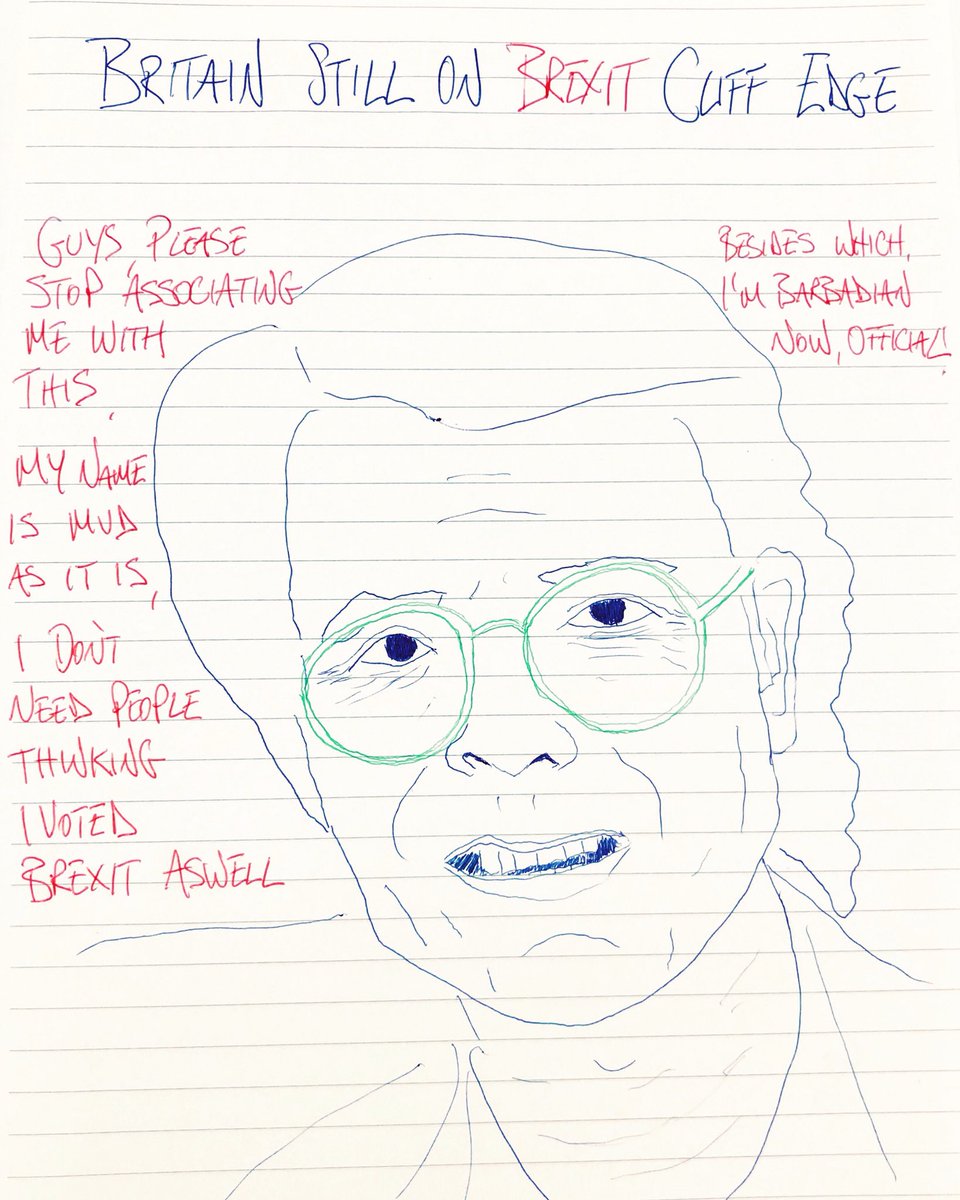 BRITAIN STILL ON BREXIT CLIFF EDGE
GUYS, PLEASE
STOP ASSOCIATING
ME WITH
THIS.
MY NAME
IS MUD
AS IT IS,
I DON'T
NEED PEOPLE
THINKING
I VOTED
BREXIT ASWELL
BESIDES WHICH,
I'M BARBADIAN
NOW, OFFICIAL!